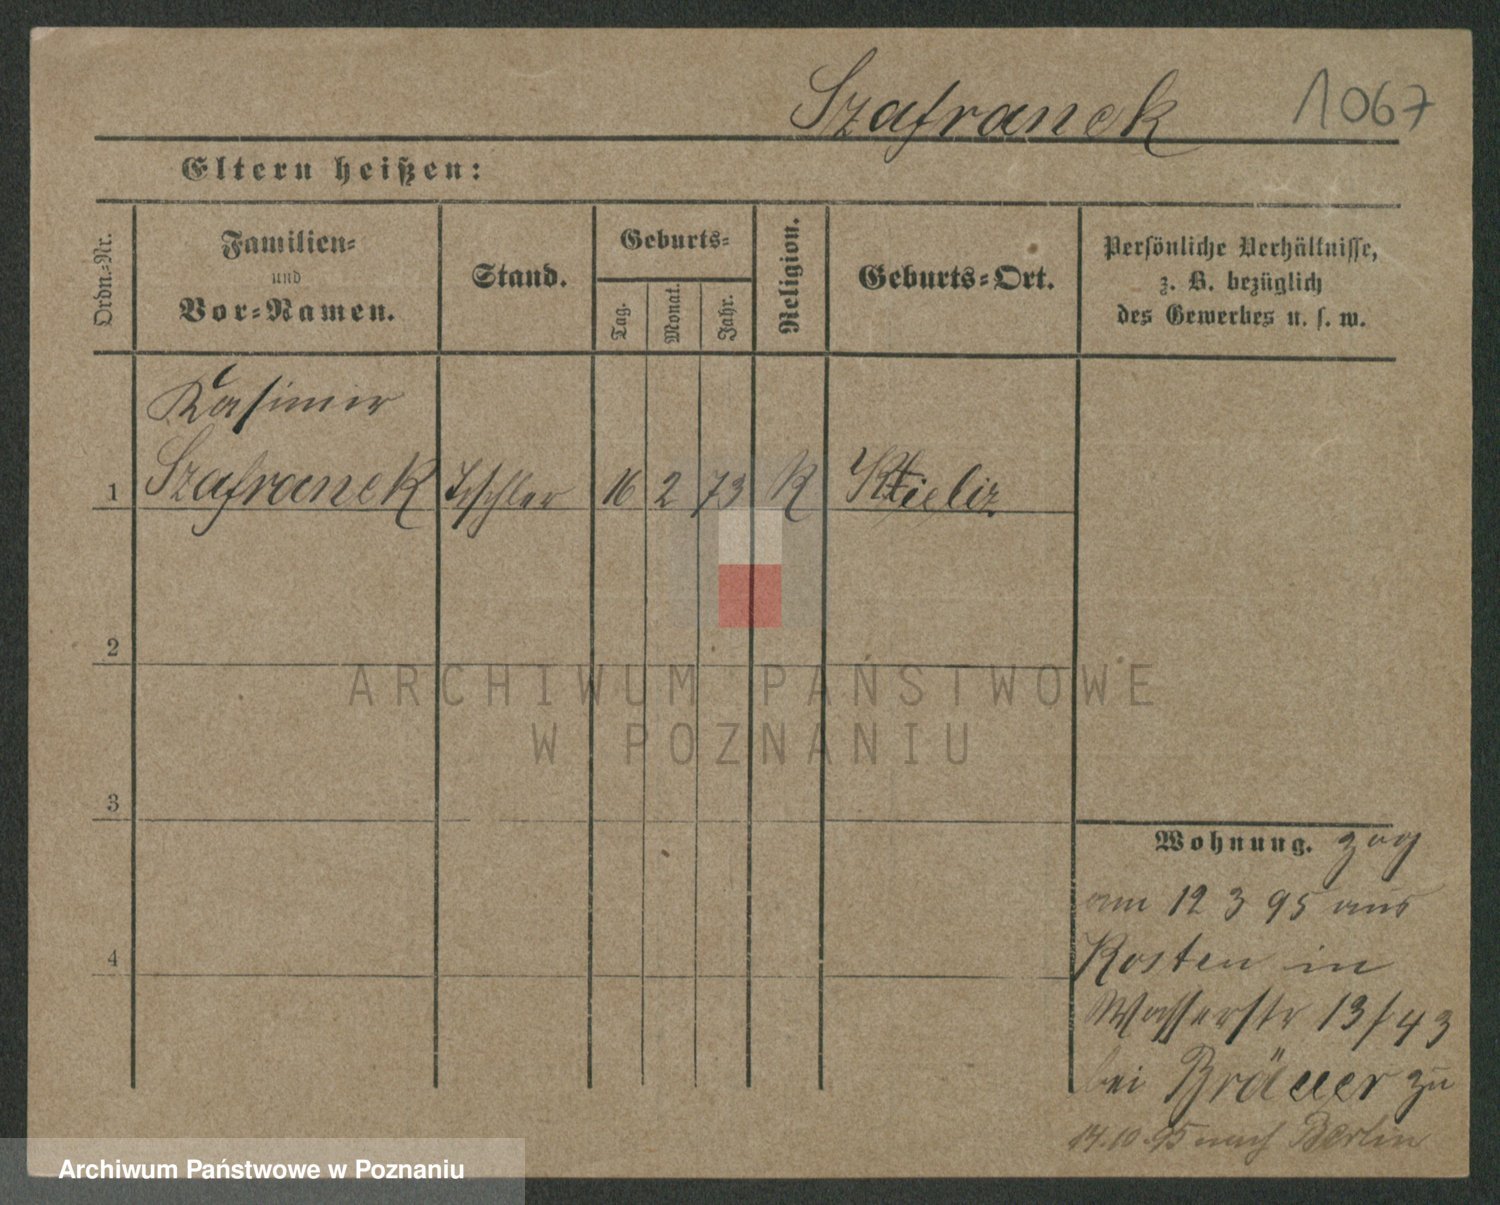 Szafranek 1067
Eltern heißen:
Ordn.-Nr.
Familien-
und
Vor-Namen.
Stand.
Geburts-
Tag.
Monat.
Jahr.
Religion.
Geburts-Ort.
Persönliche Verhältnisse,
z. B. bezüglich
des Gewerbes u. s. w.
Kasimir
1 Szafranek Tischler 16 2 73 K
2
3
4
Wohnung. zog
am 12 3 95 aus
Kosten in
Wasserstr 13/43
bei zu
14.10.95 nach Berlin
ARCHIWUM PAŃSTWOWE
W POZNANIU
Archiwum Państwowe w Poznaniu